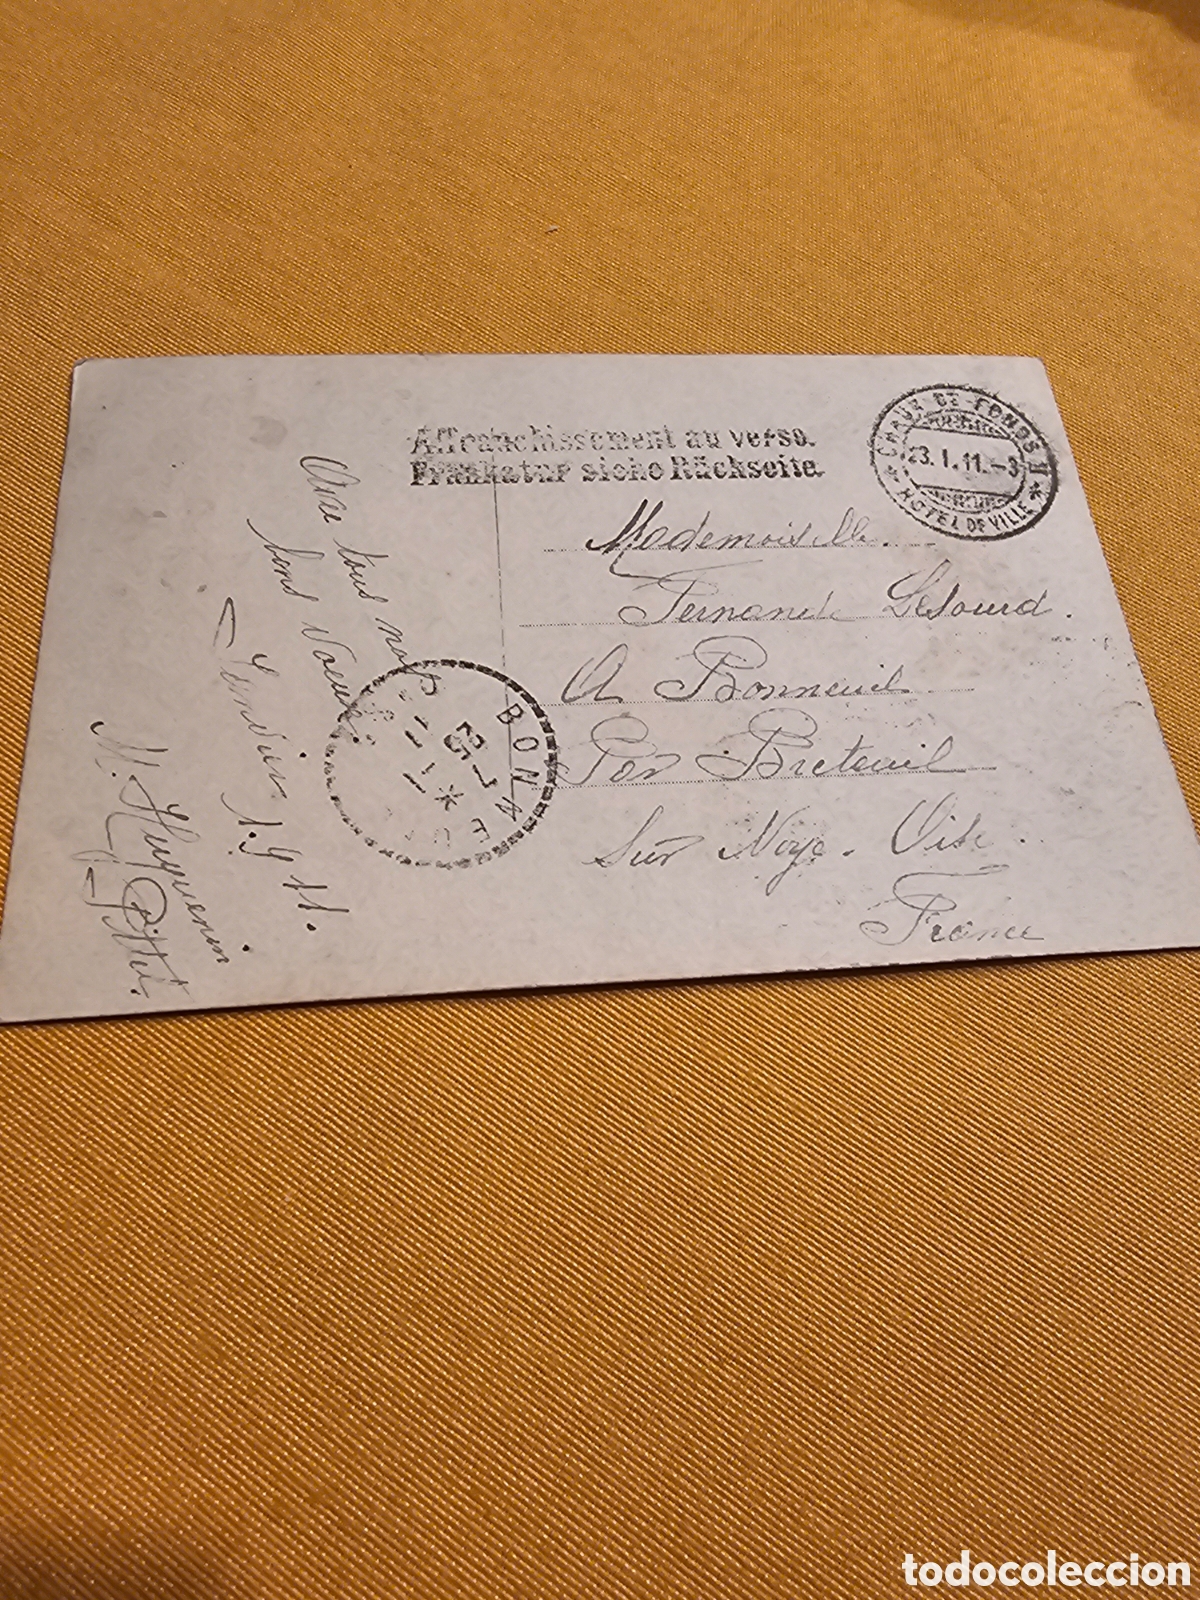 Affranchissement au verso.
Frankatur siehe Rückseite.
CHAUX-DE-FONDS II
23.I.11.-3
* HOTEL DE VILLE *
Mademoiselle
Fernande Lesourd.
A Bonneuil
Par Breteuil
Sur Noye. Oise.
France
Avec tous nos
bons Voeux.
Janvier 1911.
M. Huguenin
Pittet.
BONN
todocoleccion